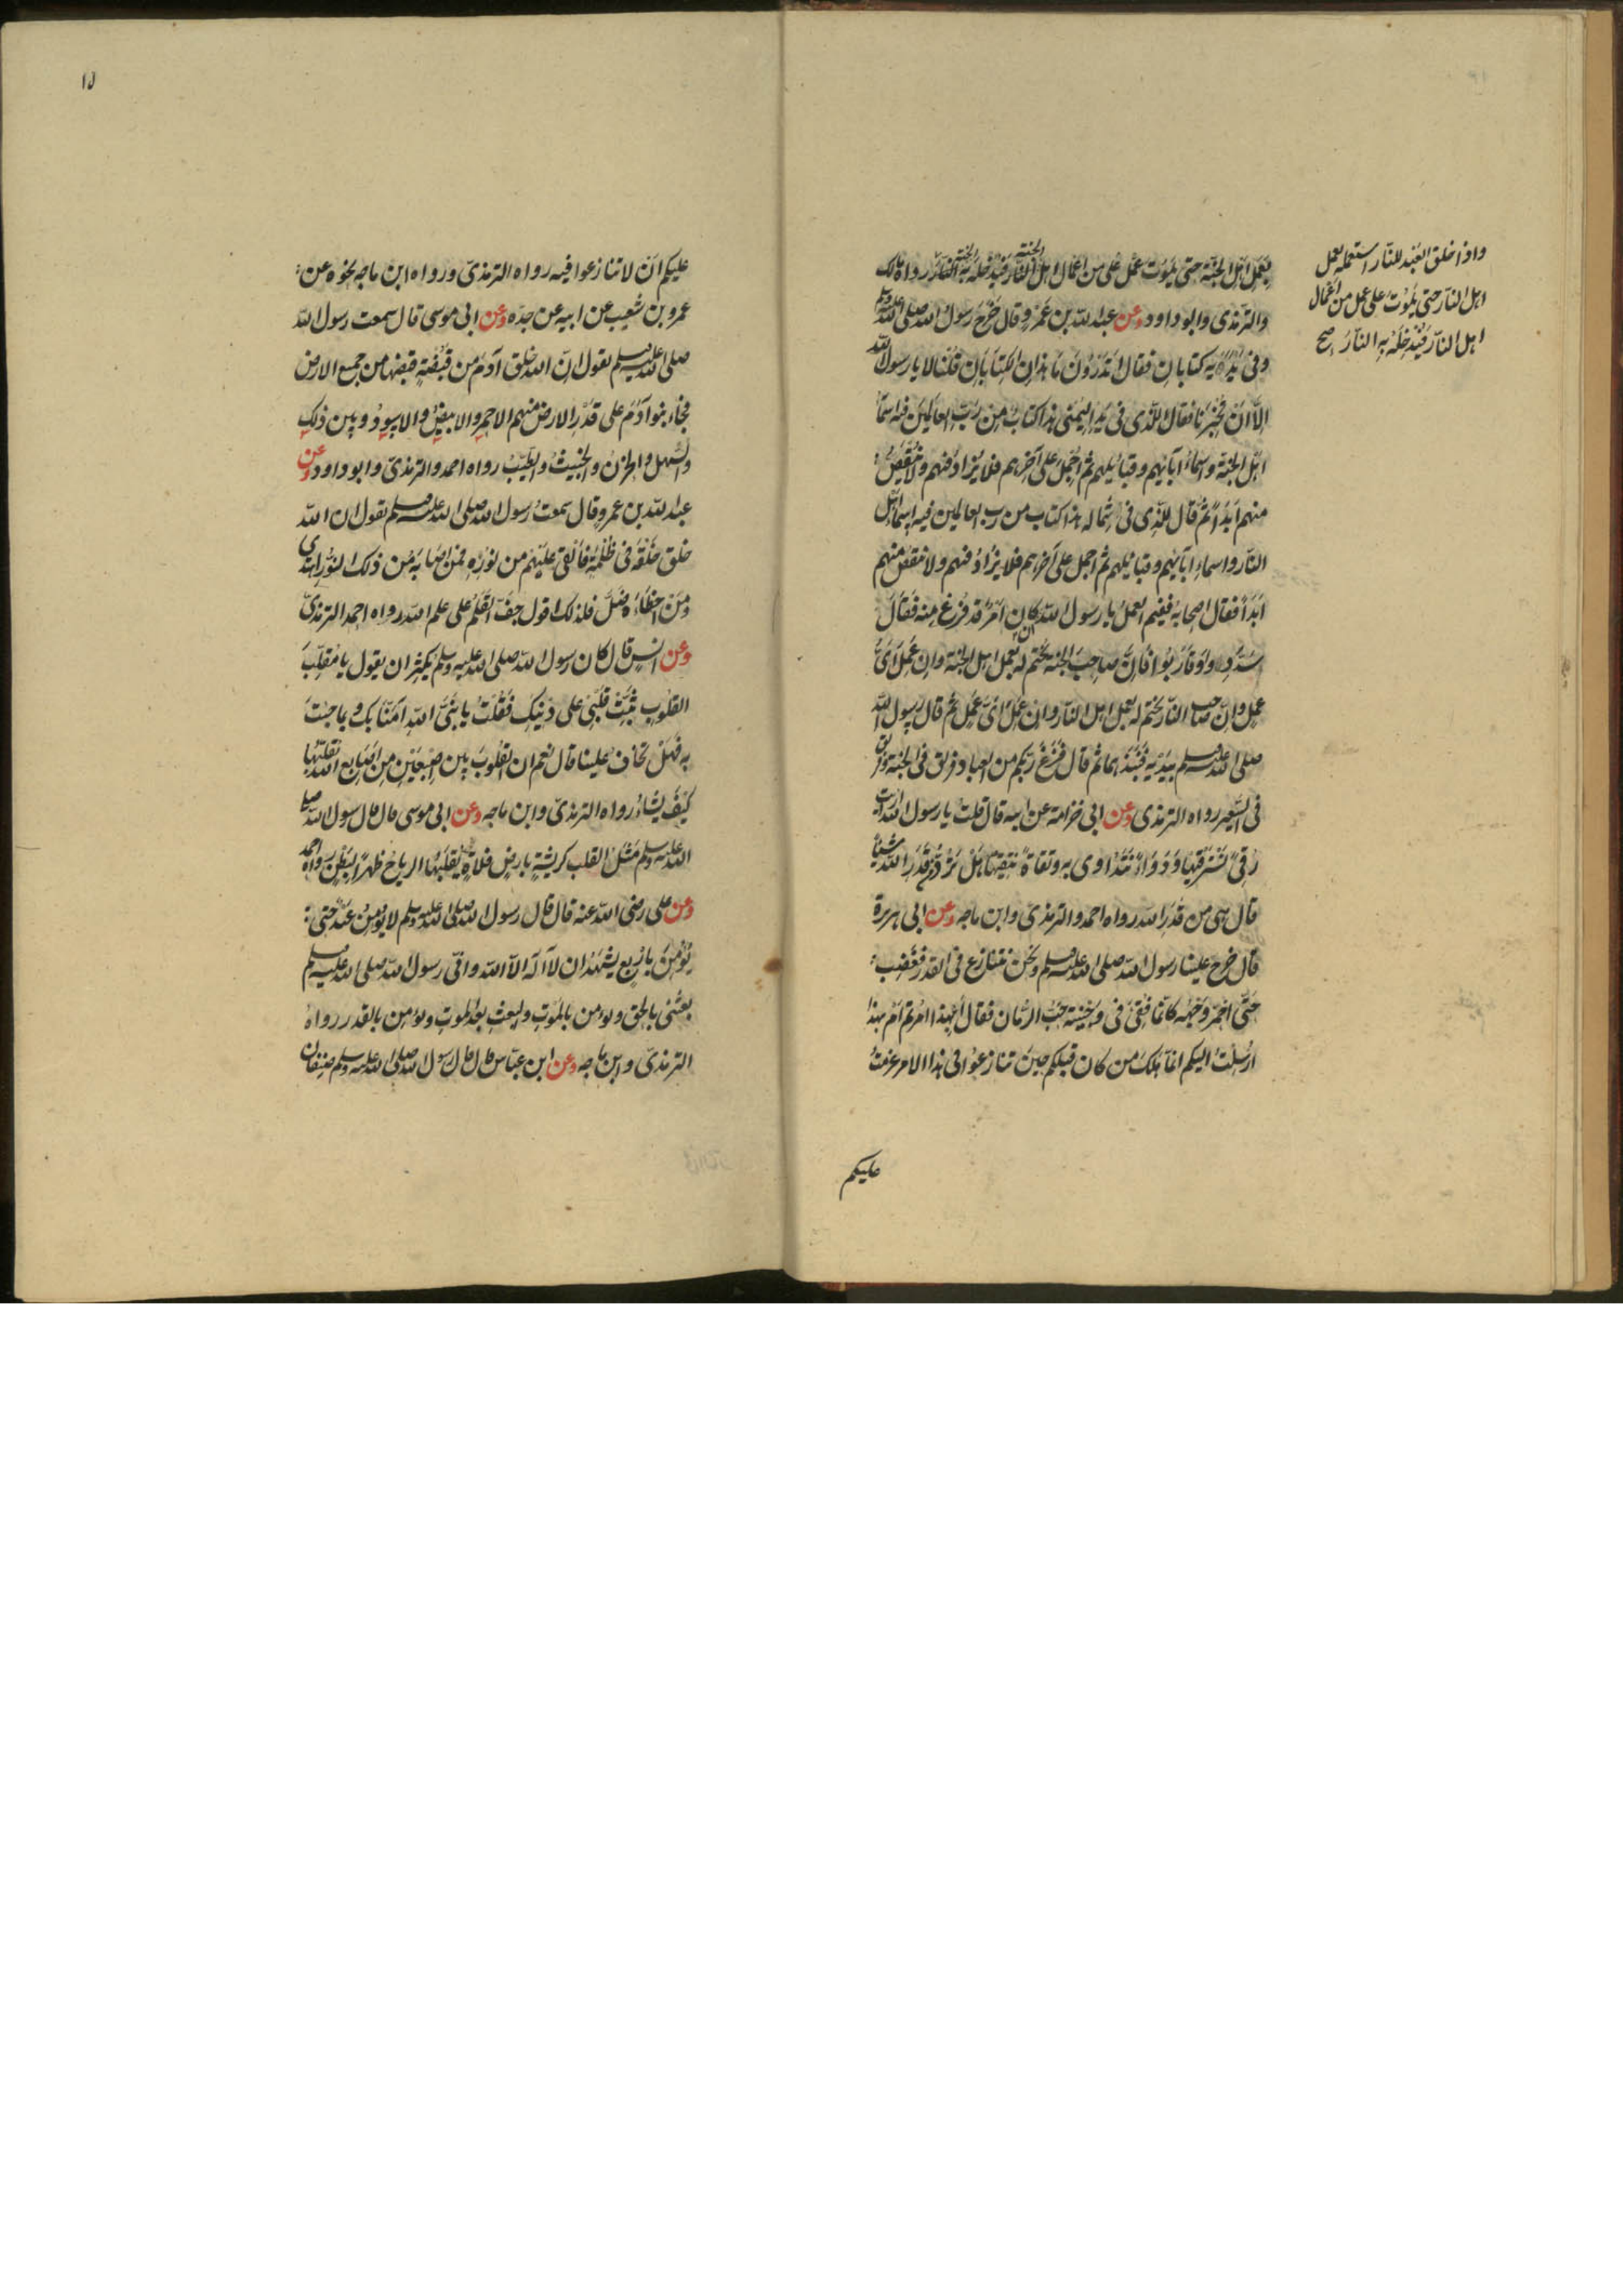 بعمل اهل الجنة حتى يموت على عمل من اعمال اهل الجنة فيدخله به الجنة رواه مالك
والترمذي وابو داود وعن عبد الله بن عمرو قال خرج رسول الله صلى الله عليه وسلم
وفي يديه كتابان فقال اتدرون ما هذان الكتابان قلنا لا يا رسول الله
الا ان تخبرنا فقال للذي في يده اليمنى هذا كتاب من رب العالمين فيه اسماء
اهل الجنة واسماء آبائهم وقبائلهم ثم اجمل على آخرهم فلا يزاد فيهم ولا ينقص
منهم ابدا ثم قال للذي في شماله هذا كتاب من رب العالمين فيه اسماء اهل
النار واسماء ابائهم وقبائلهم ثم اجمل على آخرهم فلا يزاد فيهم ولا ينقص منهم
ابدا فقال اصحابه ففيم العمل يا رسول الله ان كان امر قد فرغ منه فقال
سددوا وقاربوا فان صاحب الجنة يختم له بعمل اهل الجنة وان عمل اي
عمل وان صاحب النار يختم له بعمل اهل النار وان عمل اي عمل ثم قال رسول الله
صلى الله عليه وسلم بيديه فنبذهما ثم قال فرغ ربكم من العباد فريق في الجنة وفريق
في السعير رواه الترمذي وعن ابي خزامة عن ابيه قال قلت يا رسول الله ارايت
رقى نسترقيها ودواء نتداوى به وتقاة نتقيها هل ترد من قدر الله شيئا
قال هي من قدر الله رواه احمد والترمذي وابن ماجه وعن ابي هريرة
قال خرج علينا رسول الله صلى الله عليه وسلم ونحن نتنازع في القدر فغضب
حتى احمر وجهه كانما فقئ في وجنتيه حب الرمان فقال أبهذا امرتم ام بهذا
ارسلت اليكم انما هلك من كان قبلكم حين تنازعوا في هذا الامر عزمت
عليكم
واذا خلق العبد للنار استعمله بعمل
اهل النار حتى يموت على عمل من اعمال
اهل النار فيدخله به النار صح
١٥
عليكم ان لا تنازعوا فيه رواه الترمذي وروا ه ابن ماجه نحوه عن
عمرو بن شعيب عن ابيه عن جده وعن ابي موسى قال سمعت رسول الله
صلى الله عليه وسلم يقول ان الله خلق آدم من قبضة قبضها من جميع الارض
فجاء بنوا آدم على قدر الارض منهم الاحمر والابيض والاسود وبين ذلك
والسهل والحزن والخبيث والطيب رواه احمد والترمذي وابو داود وعن
عبد الله بن عمرو قال سمعت رسول الله صلى الله عليه وسلم يقول ان الله
خلق خلقه في ظلمة فالقى عليهم من نوره فمن اصابه من ذلك النور اهتدى
ومن اخطاه ضل فلذلك اقول جف القلم على علم الله رواه احمد الترمذي
وعن انس قال كان رسول الله صلى الله عليه وسلم يكثر ان يقول يا مقلب
القلوب ثبت قلبي على دينك فقلت يا نبي الله امنا بك وبما جئت
به فهل تخاف علينا قال نعم ان القلوب بين اصبعين من اصابع الله يقلبها
كيف يشاء رواه الترمذي وابن ماجه وعن ابي موسى قال قال رسول الله صلى
الله عليه وسلم مثل القلب كريشة بارض فلاة يقلبها الرياح ظهرا لبطن رواه احمد
وعن علي رضي الله عنه قال قال رسول الله صلى الله عليه وسلم لا يؤمن عبد حتى
يؤمن باربع يشهد ان لا اله الا الله واني رسول الله صلى الله عليه وسلم
بعثني بالحق ويؤمن بالموت والبعث بعد الموت ويؤمن بالقدر رواه
الترمذي وابن ماجه وعن ابن عباس قال قال رسول الله صلى الله عليه وسلم صنفان